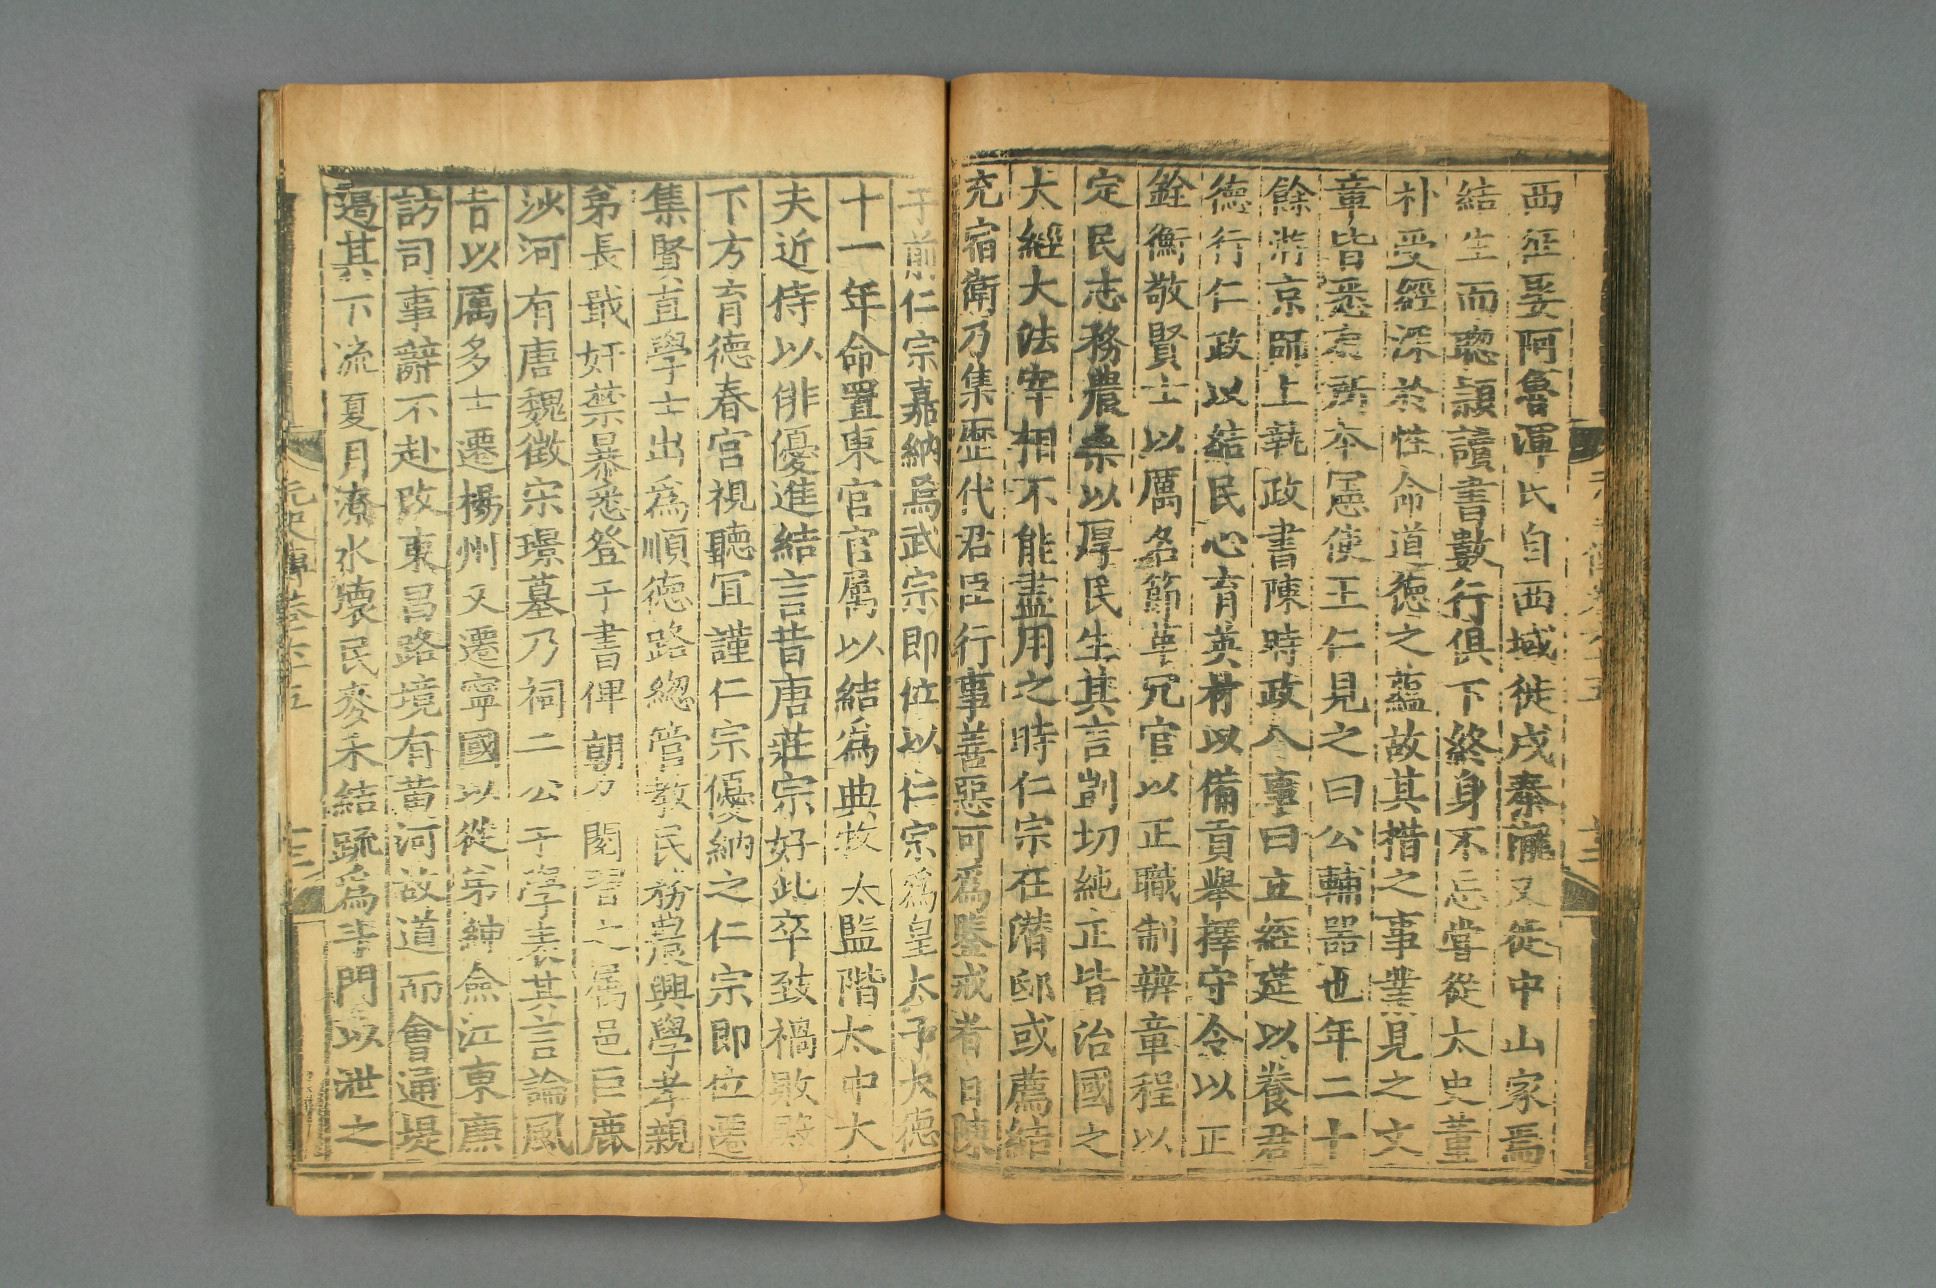 西征娶阿魯渾氏自西域徙戌秦隴又徙中山家焉
結生而聰穎讀書數行俱下終身不忘嘗從太史董
朴受經深於性命道德之蘊故其措之事業見之文
章皆悉有所本憲使王仁見之曰公輔器也年二十
餘游京師上執政書陳時政八事曰立經筵以養君
德行仁政以結民心育英材以備貢舉擇守令以正
銓衡敬賢士以厲名節革冗官以正職制辨章程以
定民志務農桑以厚民生其言剴切純正皆治國之
大經大法宰相不能盡用之時仁宗在潛邸或薦結
充宿衛乃集歷代君臣行事善惡可爲鑒戒者日陳
于前仁宗嘉納焉武宗即位以仁宗爲皇太子大德
十一年命置東宮官屬以結爲典牧太監階太中大
夫近侍以俳優進結言昔唐莊宗好此卒致禍敗殿
下方育德春宮視聽冝謹仁宗優納之仁宗即位遷
集賢直學士出爲順德路總管教民務農興學孝親
弟長戢奸禁暴悉登于書俾朝夕閱習之屬邑巨鹿
沙河有唐魏徵宋璟墓乃祠二公于學表其言論風
旨以厲多士遷楊州又遷寧國以從弟紳僉江東廉
訪司事辭不赴改東昌路境有黃河故道而會通堤
遏其下流夏月潦水壞民麥禾結疏爲斗門以泄之
元史傳卷六十五
十三